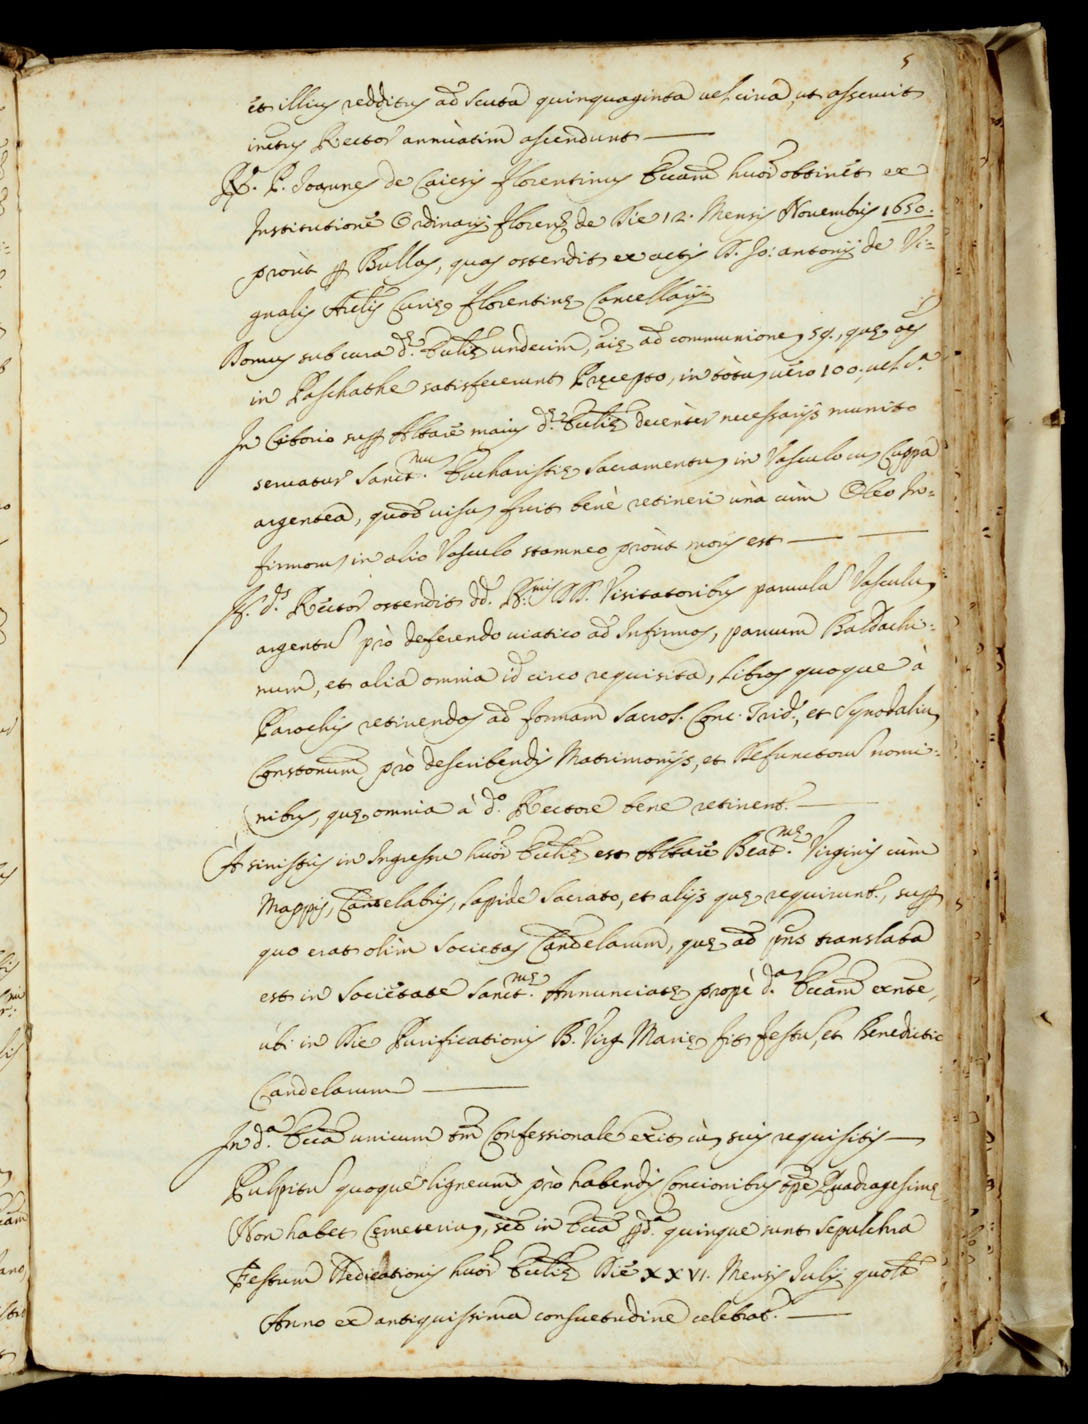 5
et illius redditus ad scuta quinquaginta vel circa, ut asseruit
Rector annuatim ascendunt —
R. P. Joannes de Caiesis Florentinus Eccam huiõ obtinet ex
Institutione Ordinarij Florenę de Die 12. Mensis Novembris 1650:
proùt p Bullas, quas ostendit ex actis D. Jo: Antonij de Vi=
gnalis Curię Florentinę Cancellarij
Domus sub cura dę. Ecclię undecim, aię ad communionem 59., quę oẽs
in Paschathe satisfecerunt Pręcepto, in totum uẽro 100. uel c.a
In Ciborio sup Altare maius dę. Ecclię decènter necessarijs munito
seruatur Sanct.mu Eucharistię Sacramentum in Vasculo cum Cuppa
argentea, quod uisum fuit benè retineri unà cùm Oleo In=
firmorum in alio Vasculo stamneo proùt moris est — —
d.s Rector ostendit dd. R.mis DD. Visitatoribus paruula Vascula
argentu pro deferendo uiatico ad Infirmos, paruum Baldachi=
num, et alia omnia id circo requisita, Libros quoque à
Parochis retinendos ad formam Sacros. Conc. Trid., et Synodalium
Constonum prò describendis Matrimonijs, et Defunctoru nomi=
nibus, quę omnia à d.o Rectore bene retinent. —
A sinistris in Ingressu huiõ Ecclię est Altare Beat.mę Virginis cùm
Mappis, Candelabris, Lapide Sacrato, et alijs quę requirunt., sup
quo erat olìm Societas Candelarum, quę ad pñs translata
est in Societate Sanct.mę Annunciatę propè d.a Eccam exñte,
ubi in Die Purificationis B. Virg Marię fit festu, et Benedictio
Candelarum —
In d.a Ecca unicum tm̃ Confessionale exit cum suis requisitis —
Pulpitu quoque ligneum prò habendis Concionibus tp̃e Quadragesimę
Non habet Cemeterium, sed in Ecca pd.a quinque sunt Sepulchra
Festum Dedicationis huiõ Ecclię Die XXVI. Mensis Julij quolt
Anno ex antiquissima consuetudine celebrat. —